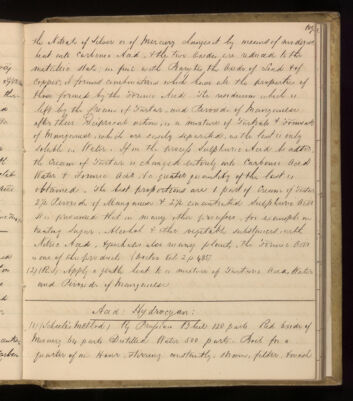 the Nitrate of Silver or of Mercury changed by means of moderate
heat into Carbonic Acid & the two oxides are reduced to the
metallic state; in fine with Barytes the Oxide of Lead & of
Copper, it formed combinations which have all the properties of
those formed by the Formic Acid. The residuum which is
left by the Cream of Tartar and Peroxide of Manganese
after their reciprocal action, is a mixture of Tartrate & Formiate
of Manganese, which are easily separated, as the last is only
soluble in Water. If in the process Sulphuric Acid be added
the Cream of Tartar is changed entirely into Carbonic Acid
Water & Formic Acid. A greater quantity of the last is
obtained. The best proportions are 1 part of Cream of Tartar
2½ Peroxide of Manganese & 2½ concentrated Sulphuric Acid
It is presumed that in many other processes, for example in
treating Sugar, Alcohol & other vegetable substances with
Nitric Acid, & perhaps also many plants, the Formic Acid
is one of the products.
(2) Apply a gentle heat to a mixture of Tartaric Acid, Water
and Peroxide of Manganese.
Acid: Hydrocyan:
(1) Scheele's Method; Prussian Blue 120 parts. Red oxide of
Mercury 60 parts Distilled Water 500 parts. Boil for a
quarter of an Hour, stirring constantly, strain, filter, &